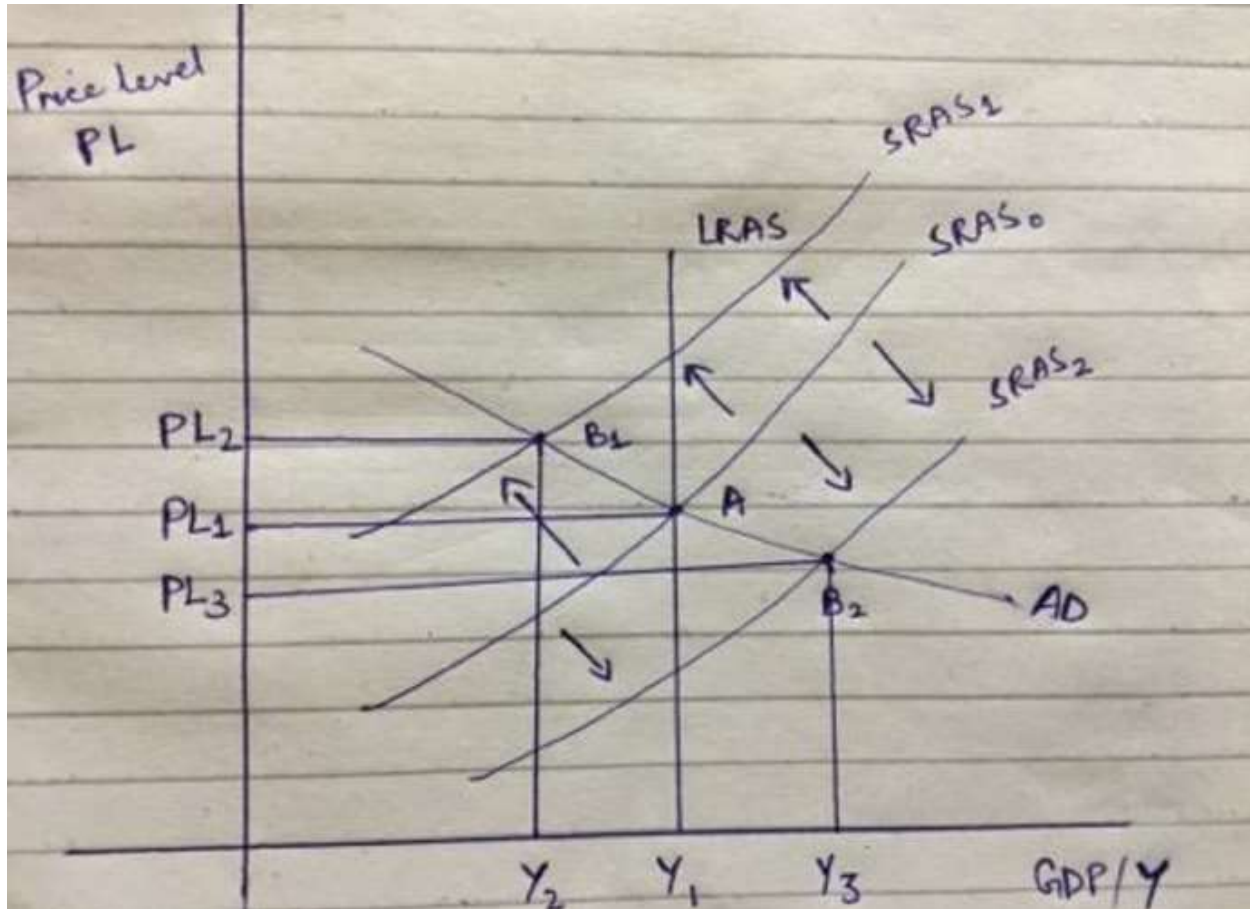 Price level
PL
SRAS1
LRAS
SRAS0
SRAS2
PL2
B1
PL1
A
PL3
B2
AD
Y2
Y1
Y3
GDP/Y